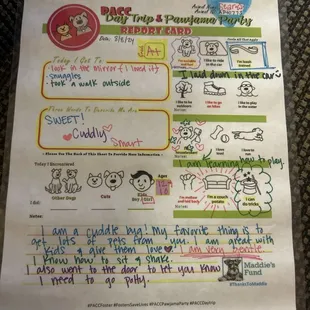 PACC
Day Trip & Pawjama Party
REPORT CARD
Date: 3/8/24
A+
Today I Got To
look in the mirror & loved it!
snuggles
took a walk outside
I laid down in the car
Three Words To Describe Me Are:
SWEET!
Cuddly
Smart
I am learning how to play.
Today I Encountered
Other Dogs
Cats
Kids
Boy / Girl
Ages
I Did:
Notes:
I am a cuddle bug! my favorite thing is to
get lots of pets from you. I am great with
kids & give them love. I am very gentle.
I know how to sit & shake.
I also went to the door to let you know
I need to go potty.
I'm a couch potato
I can do tricks
Maddie's
Fund
#ThanksToMaddie
#PACCFoster #FostersSaveLives #PACCPawjamaParty #PACCDaytrip